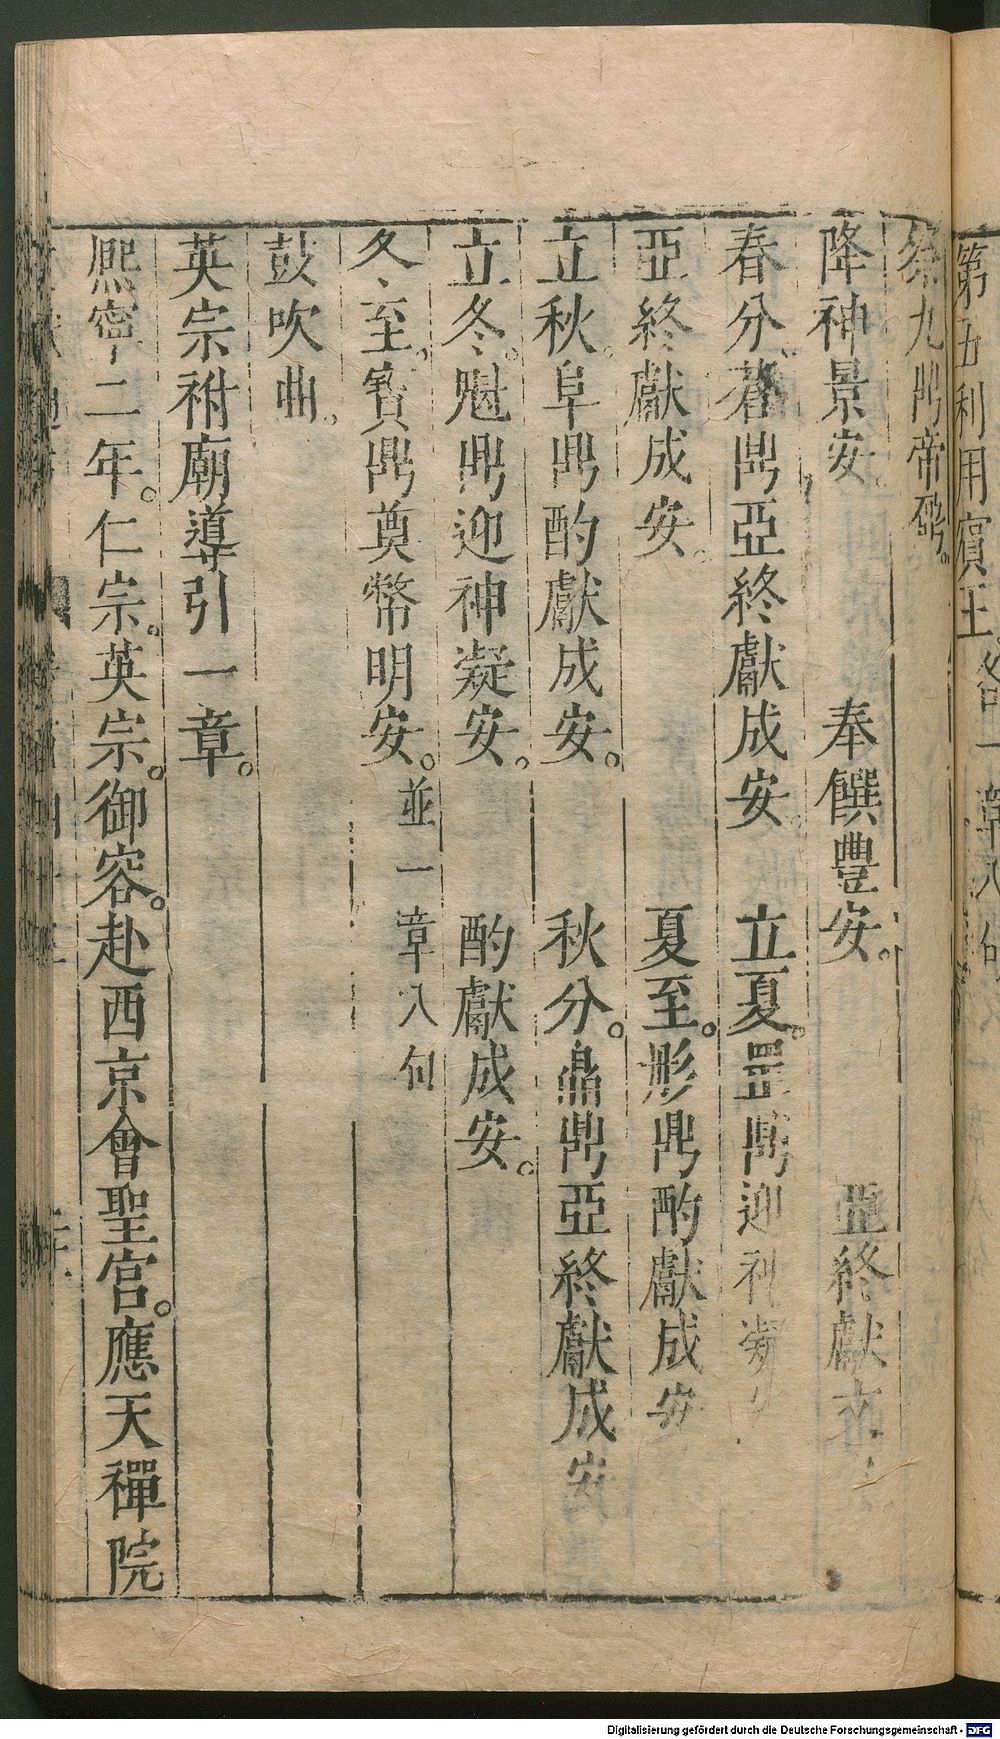 第五利用賓王 各一章八句
祭九鼎帝鼐。
降神景安。 奉饌豐安。 亞終獻文
春分。蒼鼎亞終獻成安 立夏。罡鼎迎神凝
亞終獻成安。 夏至。彤鼎酌獻成安
立秋。阜鼎酌獻成安。 秋分。晶鼎亞終獻成安
立冬。魁鼎迎神凝安。 酌獻成安。
冬至。寶鼎奠幣明安。並一章八句
鼓吹曲。
英宗祔廟導引一章。
熈寧二年。仁宗。英宗。御容。赴西京會聖宮。應天禪院
Digitalisierung gefördert durch die Deutsche Forschungsgemeinschaft - DFG